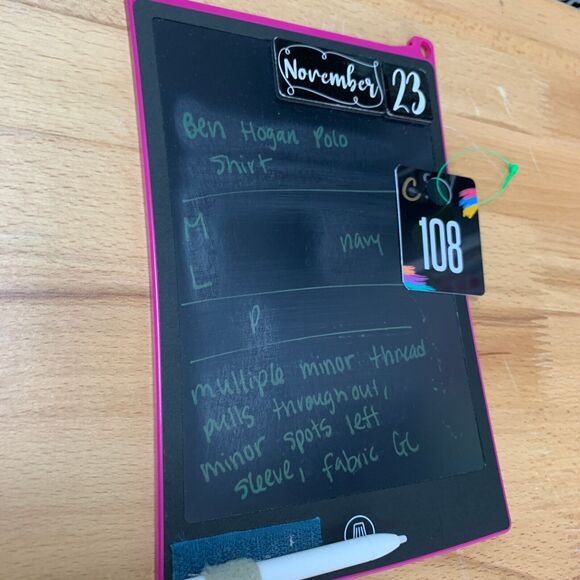 November 23
Ben Hogan Polo
Shirt
C
108
M
navy
L
P
multiple minor thread
pulls throughout,
minor spots left
sleeve, fabric GC